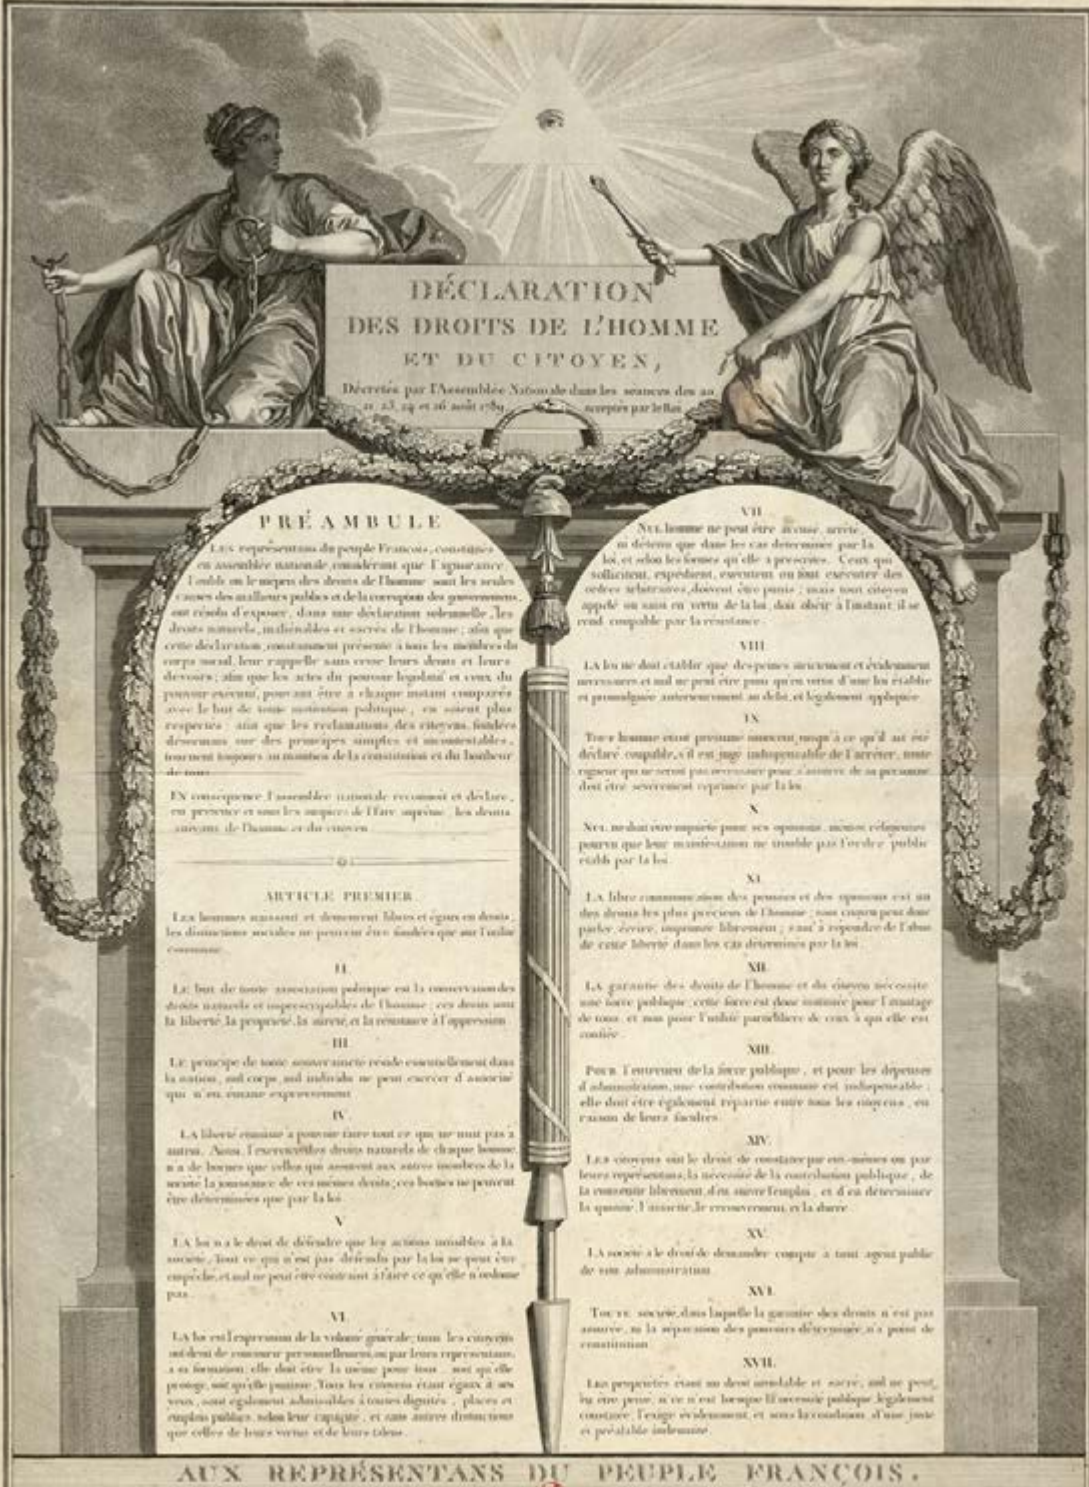 DÉCLARATION
DES DROITS DE L'HOMME
ET DU CITOYEN,
Décretés par l'Assemblée Nationale dans les séances des 20
21, 23, 24 et 26 août 1789, acceptés par le Roi
PRÉAMBULE
LES représentans du peuple François, constitués
en assemblée nationale, considérant que l'ignorance,
l'oubli ou le mépris des droits de l'homme sont les seules
causes des malheurs publics et de la corruption des gouvernemens,
ont résolu d'exposer, dans une déclaration solemnelle, les
droits naturels, inaliénables et sacrés de l'homme; afin que
cette déclaration, constamment présente à tous les membres du
corps social, leur rappelle sans cesse leurs droits et leurs
devoirs; afin que les actes du pouvoir législatif et ceux du
pouvoir exécutif, pouvant être à chaque instant comparés
avec le but de toute institution politique, en soient plus
respectés; afin que les reclamations des citoyens, fondées
désormais sur des principes simples et incontestables,
tournent toujours au maintien de la constitution et du bonheur
de tous.
EN conséquence, l'assemblée nationale reconnoit et déclare,
en présence et sous les auspices de l'Être suprême, les droits
suivans de l'homme et du citoyen.
ARTICLE PREMIER.
LES hommes naissent et demeurent libres et égaux en droits;
les distinctions sociales ne peuvent être fondées que sur l'utilité
commune.
II.
LE but de toute association politique est la conservation des
droits naturels et imprescriptibles de l'homme; ces droits sont
la liberté, la propriété, la sureté, et la résistance à l'oppression.
III.
LE principe de toute souveraineté réside essentiellement dans
la nation, nul corps, nul individu ne peut exercer d'autorité
qui n'en émane expressément.
IV.
LA liberté consiste à pouvoir faire tout ce qui ne nuit pas à
autrui. Ainsi, l'exercice des droits naturels de chaque homme,
n'a de bornes que celles qui assurent aux autres membres de la
société la jouissance de ces mêmes droits; ces bornes ne peuvent
être déterminées que par la loi.
V.
LA loi n'a le droit de défendre que les actions nuisibles à la
société. Tout ce qui n'est pas défendu par la loi ne peut être
empêché, et nul ne peut être contraint à faire ce qu'elle n'ordonne
pas.
VI.
LA loi est l'expression de la volonté générale; tous les citoyens
ont droit de concourir personnellement, ou par leurs représentans,
à sa formation; elle doit être la même pour tous, soit qu'elle
protege, soit qu'elle punisse. Tous les citoyens étant égaux à ses
yeux, sont également admissibles à toutes dignités, places et
emplois publics, selon leur capacité, et sans autres distinctions
que celles de leurs vertus et de leurs talens.
VII.
NUL homme ne peut être accusé, arrêté,
ni détenu que dans les cas déterminés par la
loi, et selon les formes qu'elle a prescrites. Ceux qui
sollicitent, expédient, exécutent ou font exécuter des
ordres arbitraires, doivent être punis; mais tout citoyen
appelé ou saisi en vertu de la loi, doit obéir à l'instant, il se
rend coupable par la résistance.
VIII.
LA loi ne doit établir que des peines strictement et évidemment
nécessaires, et nul ne peut être puni qu'en vertu d'une loi établie
et promulguée antérieurement au délit, et légalement appliquée.
IX.
TOUT homme étant présumé innocent jusqu'à ce qu'il ait été
déclaré coupable, s'il est jugé indispensable de l'arrêter, toute
rigueur qui ne seroit pas nécessaire pour s'assurer de sa personne
doit être sévèrement réprimée par la loi.
X.
NUL ne doit être inquiété pour ses opinions, mêmes religieuses
pourvu que leur manifestation ne trouble pas l'ordre public
établi par la loi.
XI.
LA libre communication des pensées et des opinions est un
des droits les plus précieux de l'homme; tout citoyen peut donc
parler, écrire, imprimer librement; sauf à répondre de l'abus
de cette liberté dans les cas déterminés par la loi.
XII.
LA garantie des droits de l'homme et du citoyen nécessite
une force publique; cette force est donc instituée pour l'avantage
de tous, et non pour l'utilité particulière de ceux à qui elle est
confiée.
XIII.
POUR l'entretien de la force publique, et pour les dépenses
d'administration, une contribution commune est indispensable;
elle doit être également répartie entre tous les citoyens, en
raison de leurs facultés.
XIV.
LES citoyens ont le droit de constater par eux-mêmes ou par
leurs représentans, la nécessité de la contribution publique, de
la consentir librement, d'en suivre l'emploi, et d'en déterminer
la quotité, l'assiette, le recouvrement, et la durée.
XV.
LA société a le droit de demander compte à tout agent public
de son administration.
XVI.
TOUTE société, dans laquelle la garantie des droits n'est pas
assurée, ni la séparation des pouvoirs déterminée, n'a point de
constitution.
XVII.
LES propriétés étant un droit inviolable et sacré, nul ne peut
en être privé, si ce n'est lorsque la nécessité publique, légalement
constatée, l'exige évidemment, et sous la condition d'une juste
et préalable indemnité.
AUX REPRÉSENTANS DU PEUPLE FRANÇOIS.